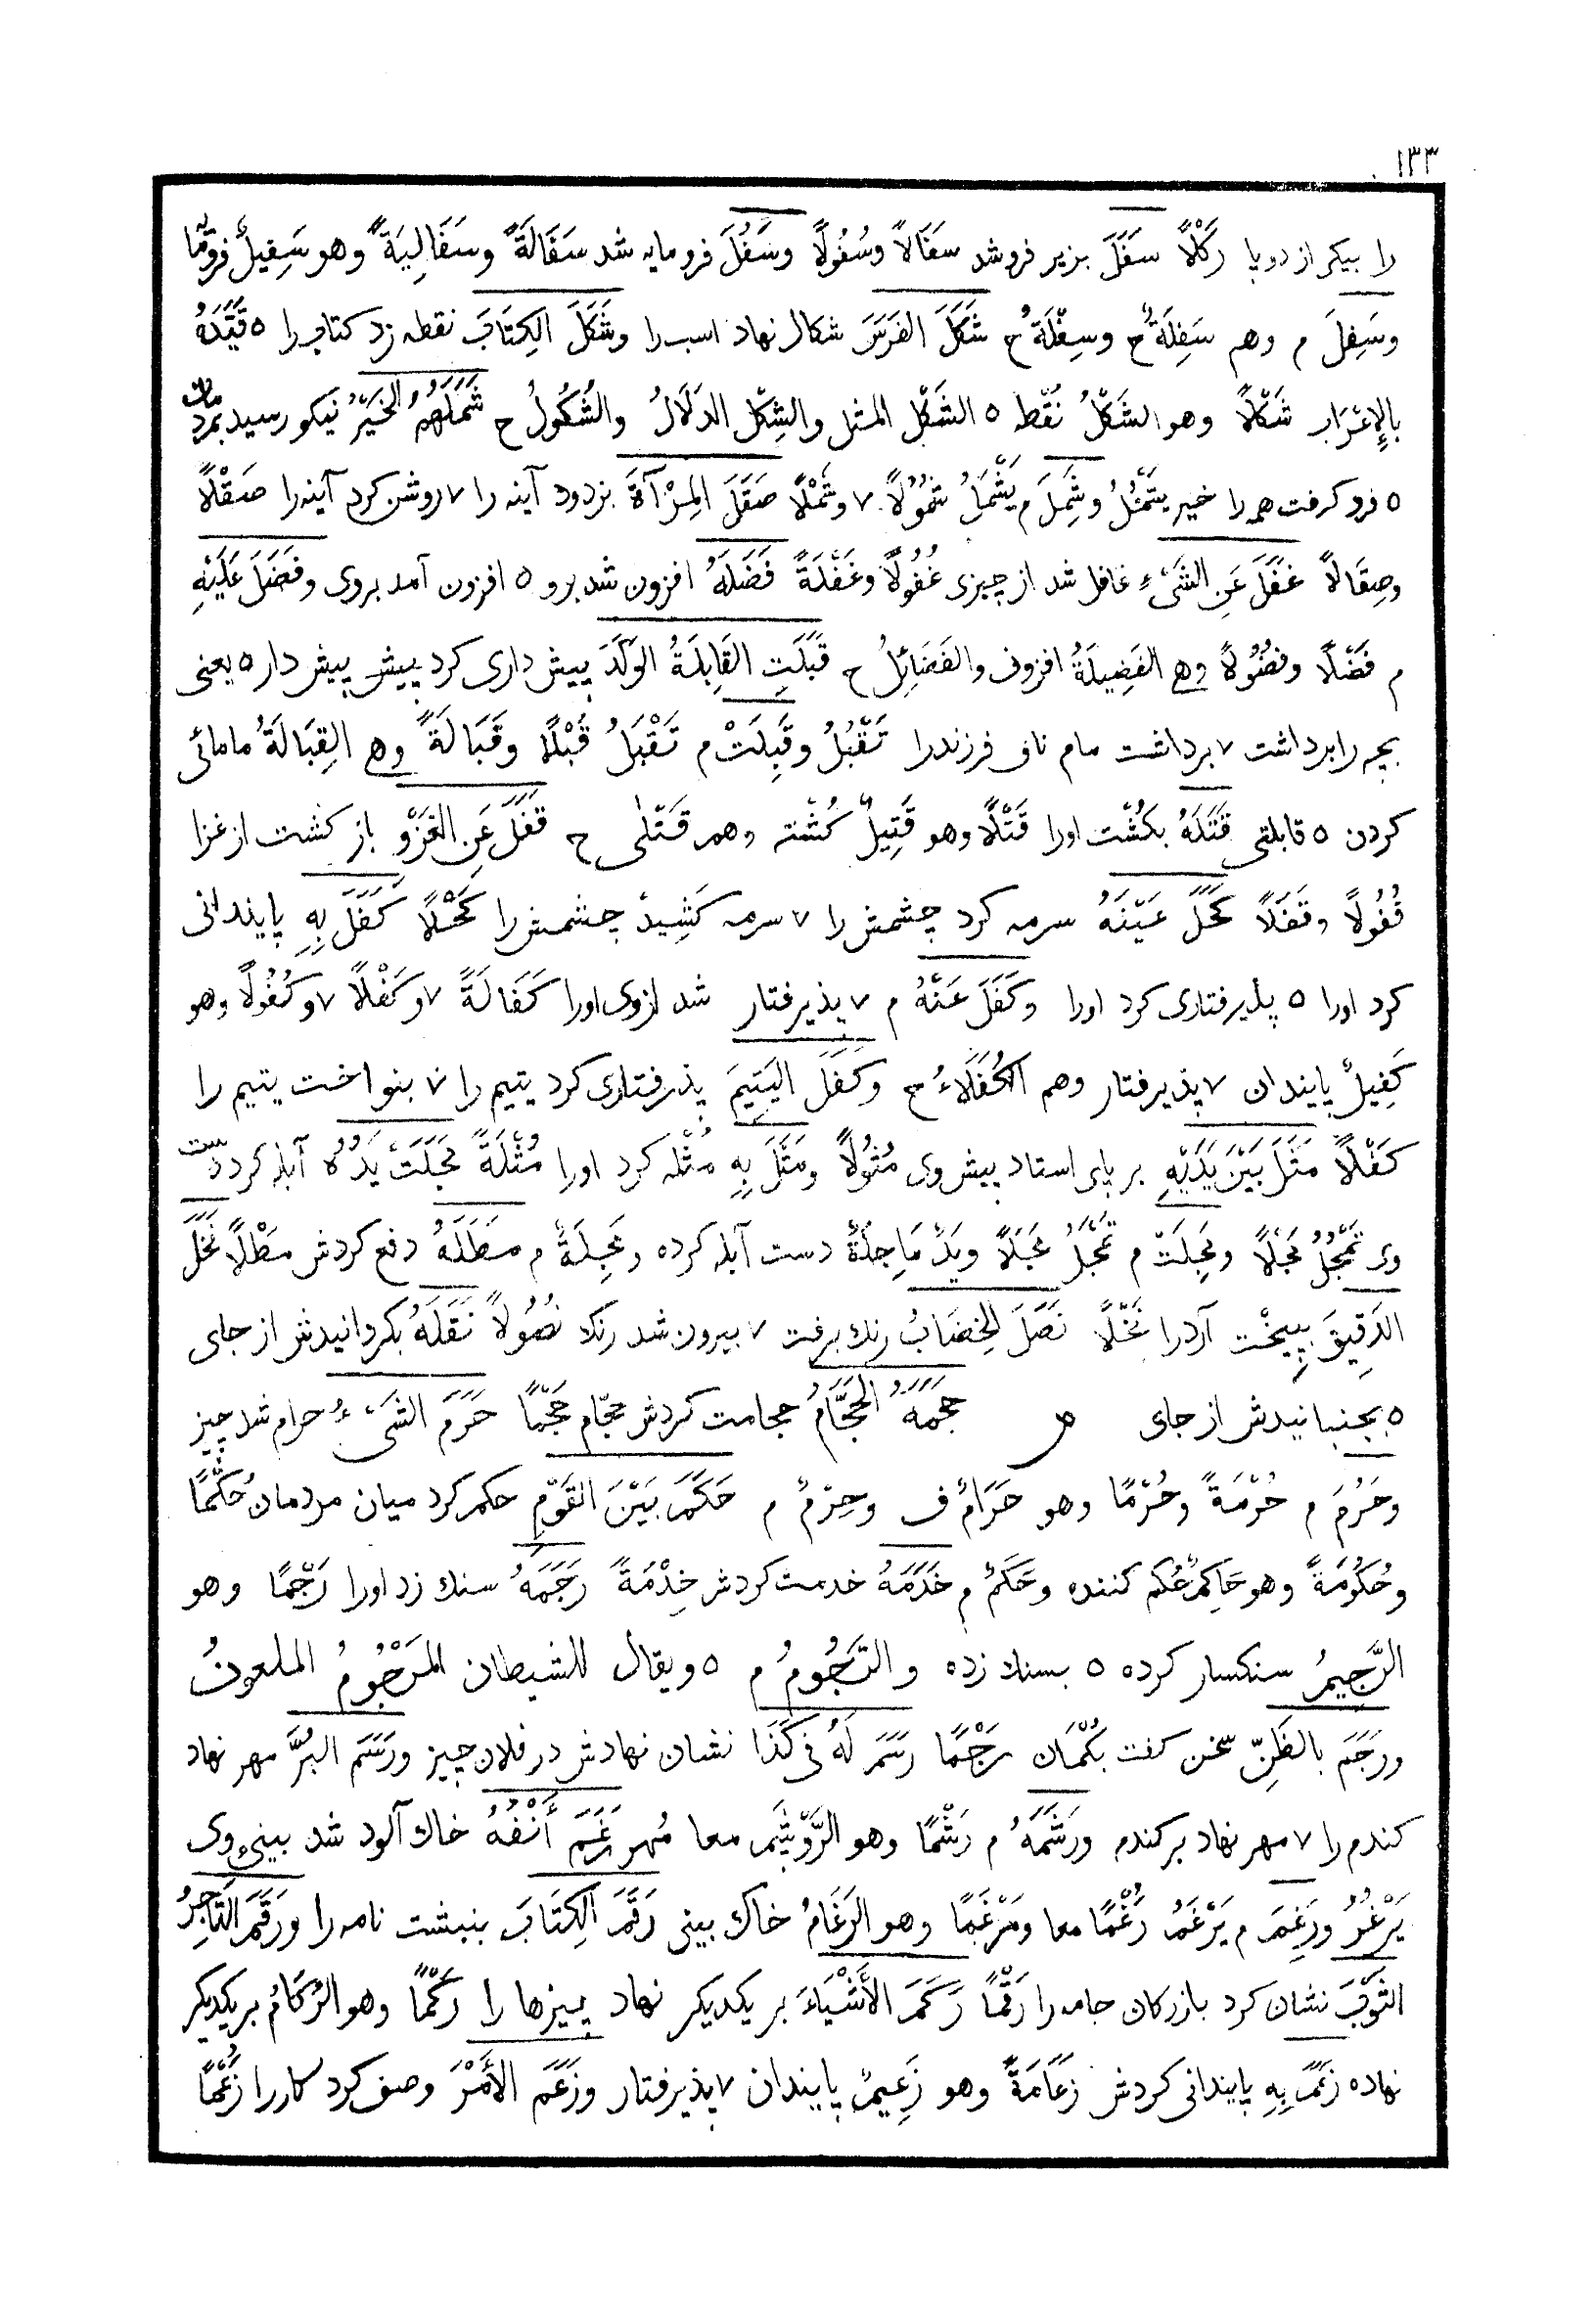 ١٣٣
را بیکر از دو پا رَکْلًا سَفَلَ بزیر فروشد سَفَالاً وسُفُولًا وسَفُلَ فرومایه شد سَفَالَةً وسَفَالِیَةً وهو سَفِیلٌ فرومایه
وسَفِلَ م وهم سَفِلَةٌ ح وسِفْلَةٌ ح شَکَلَ الفَرَسَ شکال نهاد اسب را وشَکَلَ الکِتَابَ نقطه زد کتاب را ٥ قَیَّدَهُ
بالإِعْرَابِ شَکْلًا وهو الشَکْلُ نُقْطه ٥ الشَکْل المثل والشِکْل الدَلَالُ والشُکُولُ ح شَمَلَهُمُ الخَیْرُ نیکو رسید بمردمان
٥ فرو کرفت همه را خیر یَشْمُلُ وشَمِلَ م یَشْمَلُ شُمُولًا ٧ وشَمْلًا صَقَلَ المِرْآةَ بزدود آینه را ٧ روشن کرد آینه را صَقْلًا
وصِقَالًا غَفَلَ عَنِ الشَیْءِ غافل شد از چیزی غُفُولًا وغَفْلَةً فَضَلَهُ افزون شد برو ٥ افزون آمد بروی وفَضَلَ عَلَیْهِ
م فَضْلًا وفضُولًا وهی الفَضِیلَةُ افزونی والفَضَائِلُ ح قَبَلَتِ القَابِلَةُ الوَلَدَ پیش داری کرد پیش پیش دار ٥ یعنی
بچه را برداشت ٧ برداشت مام ناف فرزند را تَقْبُلُ وقَبِلَتْ م تَقْبَلُ قَبْلًا وقَبَالَةً وهی القِبَالَةُ مامائی
کردن ٥ قابلتی قَتَلَهُ بکُشْت اورا قَتْلًا وهو قَتِیلٌ کُشْته وهم قَتْلٰی ح قَفَلَ عَنِ الغَزْوِ باز کشت از غزا
قُفُولًا وقَفَلًا کَحَلَ عَیْنَهُ سرمه کرد چشمش را ٧ سرمه کَشِید چشمش را کَحْلًا کَفَلَ بِهِ پایندانی
کرد اورا ٥ پذیرفتاری کرد اورا وکَفَلَ عَنْهُ م ٧ پذیرفتار شد از وی اورا کَفَالَةً ٧ وکَفْلًا ٧ وکُفُولًا وهو
کَفِیلٌ پایندان ٧ پذیرفتار وهم الکُفَلَاءُ ح وکَفَلَ الیَتِیمَ پذرفتاری کرد یتیم را ٧ بنواخت یتیم را
کَفْلًا مَثَلَ بَیْنَ یَدَیْهِ بر پای استاد پیش وی مُثُولًا ومَثَلَ بِهِ مُثْله کرد اورا مُثْلَةً مَجَلَتْ یَدُهُ آبله کرد دست
وی تَمْجُلُ مَجْلًا ومَجِلَتْ م تَمْجَلُ مَجَلًا ویَدٌ مَاجِلَةٌ دست آبله کرده ومَجِلَةٌ م مَطَلَهُ دفع کردش مَطْلًا نَخَلَ
الدَقِیقَ ببیخْت آرد را نَخْلًا نَصَلَ الخِضَابُ رنك برفت ٧ بیرون شد رنك نُصُولًا نَقَلَهُ بکردانیدش از جای
٥ بجنبانیدش از جای م حَجَمَهُ الحَجَّامُ حجامت کردش حجّام حَجْمًا حَرَمَ الشَیْءُ حرام شد چیز
وحَرُمَ م حُرْمَةً وحُرْمًا وهو حَرَامٌ ف وحِرْمٌ م حَکَمَ بَیْنَ القَوْمِ حکم کرد میان مردمان حُکْمًا
وحُکُومَةً وهو حَاکِمٌ حُکم کننده وحَکَمٌ م خَدَمَهُ خدمت کردش خِدْمَةً رَجَمَهُ سنك زد اورا رَجْمًا وهو
الرَّجِیمُ سنکسار کرده ٥ بسنك زده والمَرْجُومُ م ٥ ویقال للشیطان المَرْجُومُ الملعونُ
ورَجَمَ بالظَنِّ سخن کفت بکُمَان رَجْمًا رَسَمَ لَهُ فی کَذَا نشان نهادش در فلان چیز ورَسَمَ البُرَّ مهر نهاد
کندم را ٧ مهر نهاد بر کندم ورَشَمَهُ م رَشْمًا وهو الرَّوْشَم معا مُهر رَغَمَ أَنْفُهُ خاك آلود شد بینی وی
یَرْغُمُ ورَغِمَ م یَرْغَمُ رُغْمًا معا ومَرْغَمًا وهو الرَغَامُ خاك بینی رَقَمَ الکِتَابَ بنبشت نامه را ورَقَمَ التَاجِرُ
الثَوْبَ نشان کرد بازرکان جامه را رَقْمًا رَکَمَ الأَشْیَاءَ بر یکدیکر نهاد چیزها را رَکْمًا وهو الرُکَامُ بر یکدیکر
نهاده زَعَمَ بِهِ پایندانی کردش زَعَامَةً وهو زَعِیمٌ پایندان ٧ پذیرفتار وزَعَمَ الأَمْرَ وصف کرد کار را زُعْمًا